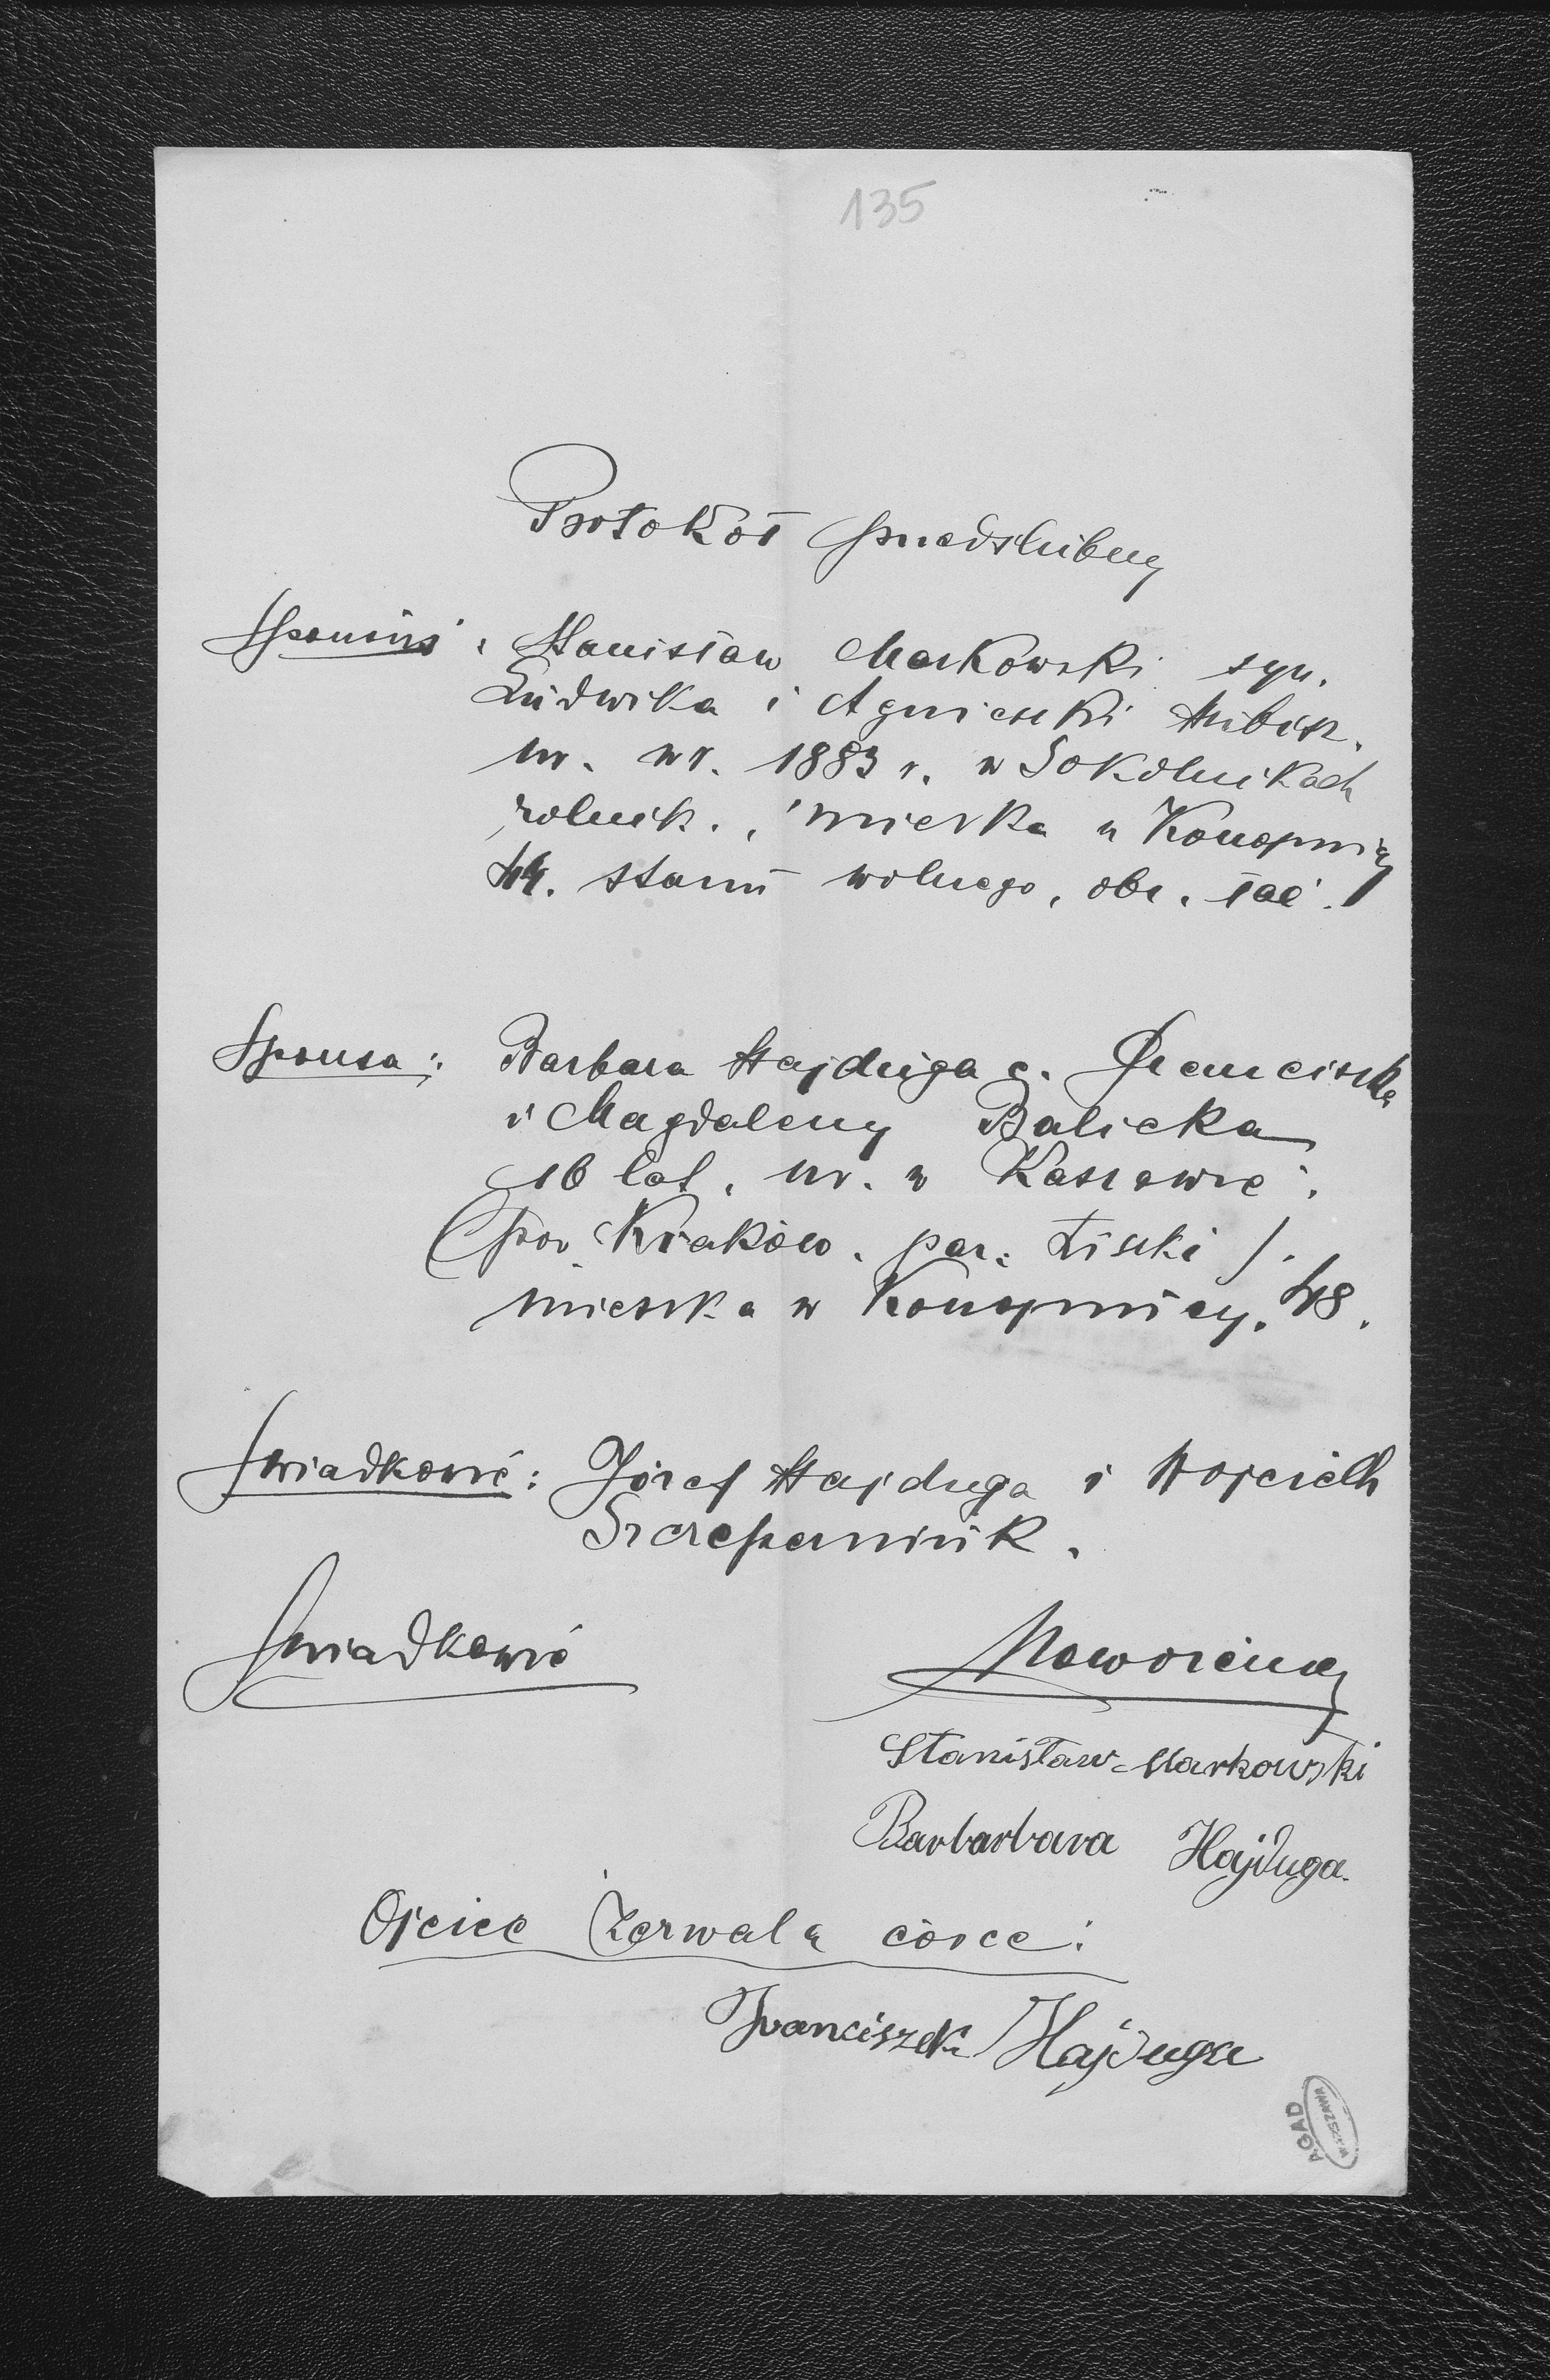 135
Protokół przedślubny
Sponsus: Stanisław Markowski syn.
Ludwika i Agnieszki Hubisz.
ur. w r. 1883 r. w Sokolnikach
rolnik., mieszka w Konopnicy
44. stanu wolnego, obr. łać.
Sponsa: Barbara Hajduga c. Franciszka
i Magdaleny Balicka
16 lat, ur. w Kaszowie,
(pow Kraków. par. Liszki).
mieszka w Konopnicy. 48.
Świadkowie: Józef Hajduga i Wojciech
Szczepaniuk.
Świadkowie
Nowożeńcy
Stanisław Markowski
Barbarbara Hajduga.
Ojciec zezwala córce:
Franciszek Hajduga
AGAD
WARSZAWA